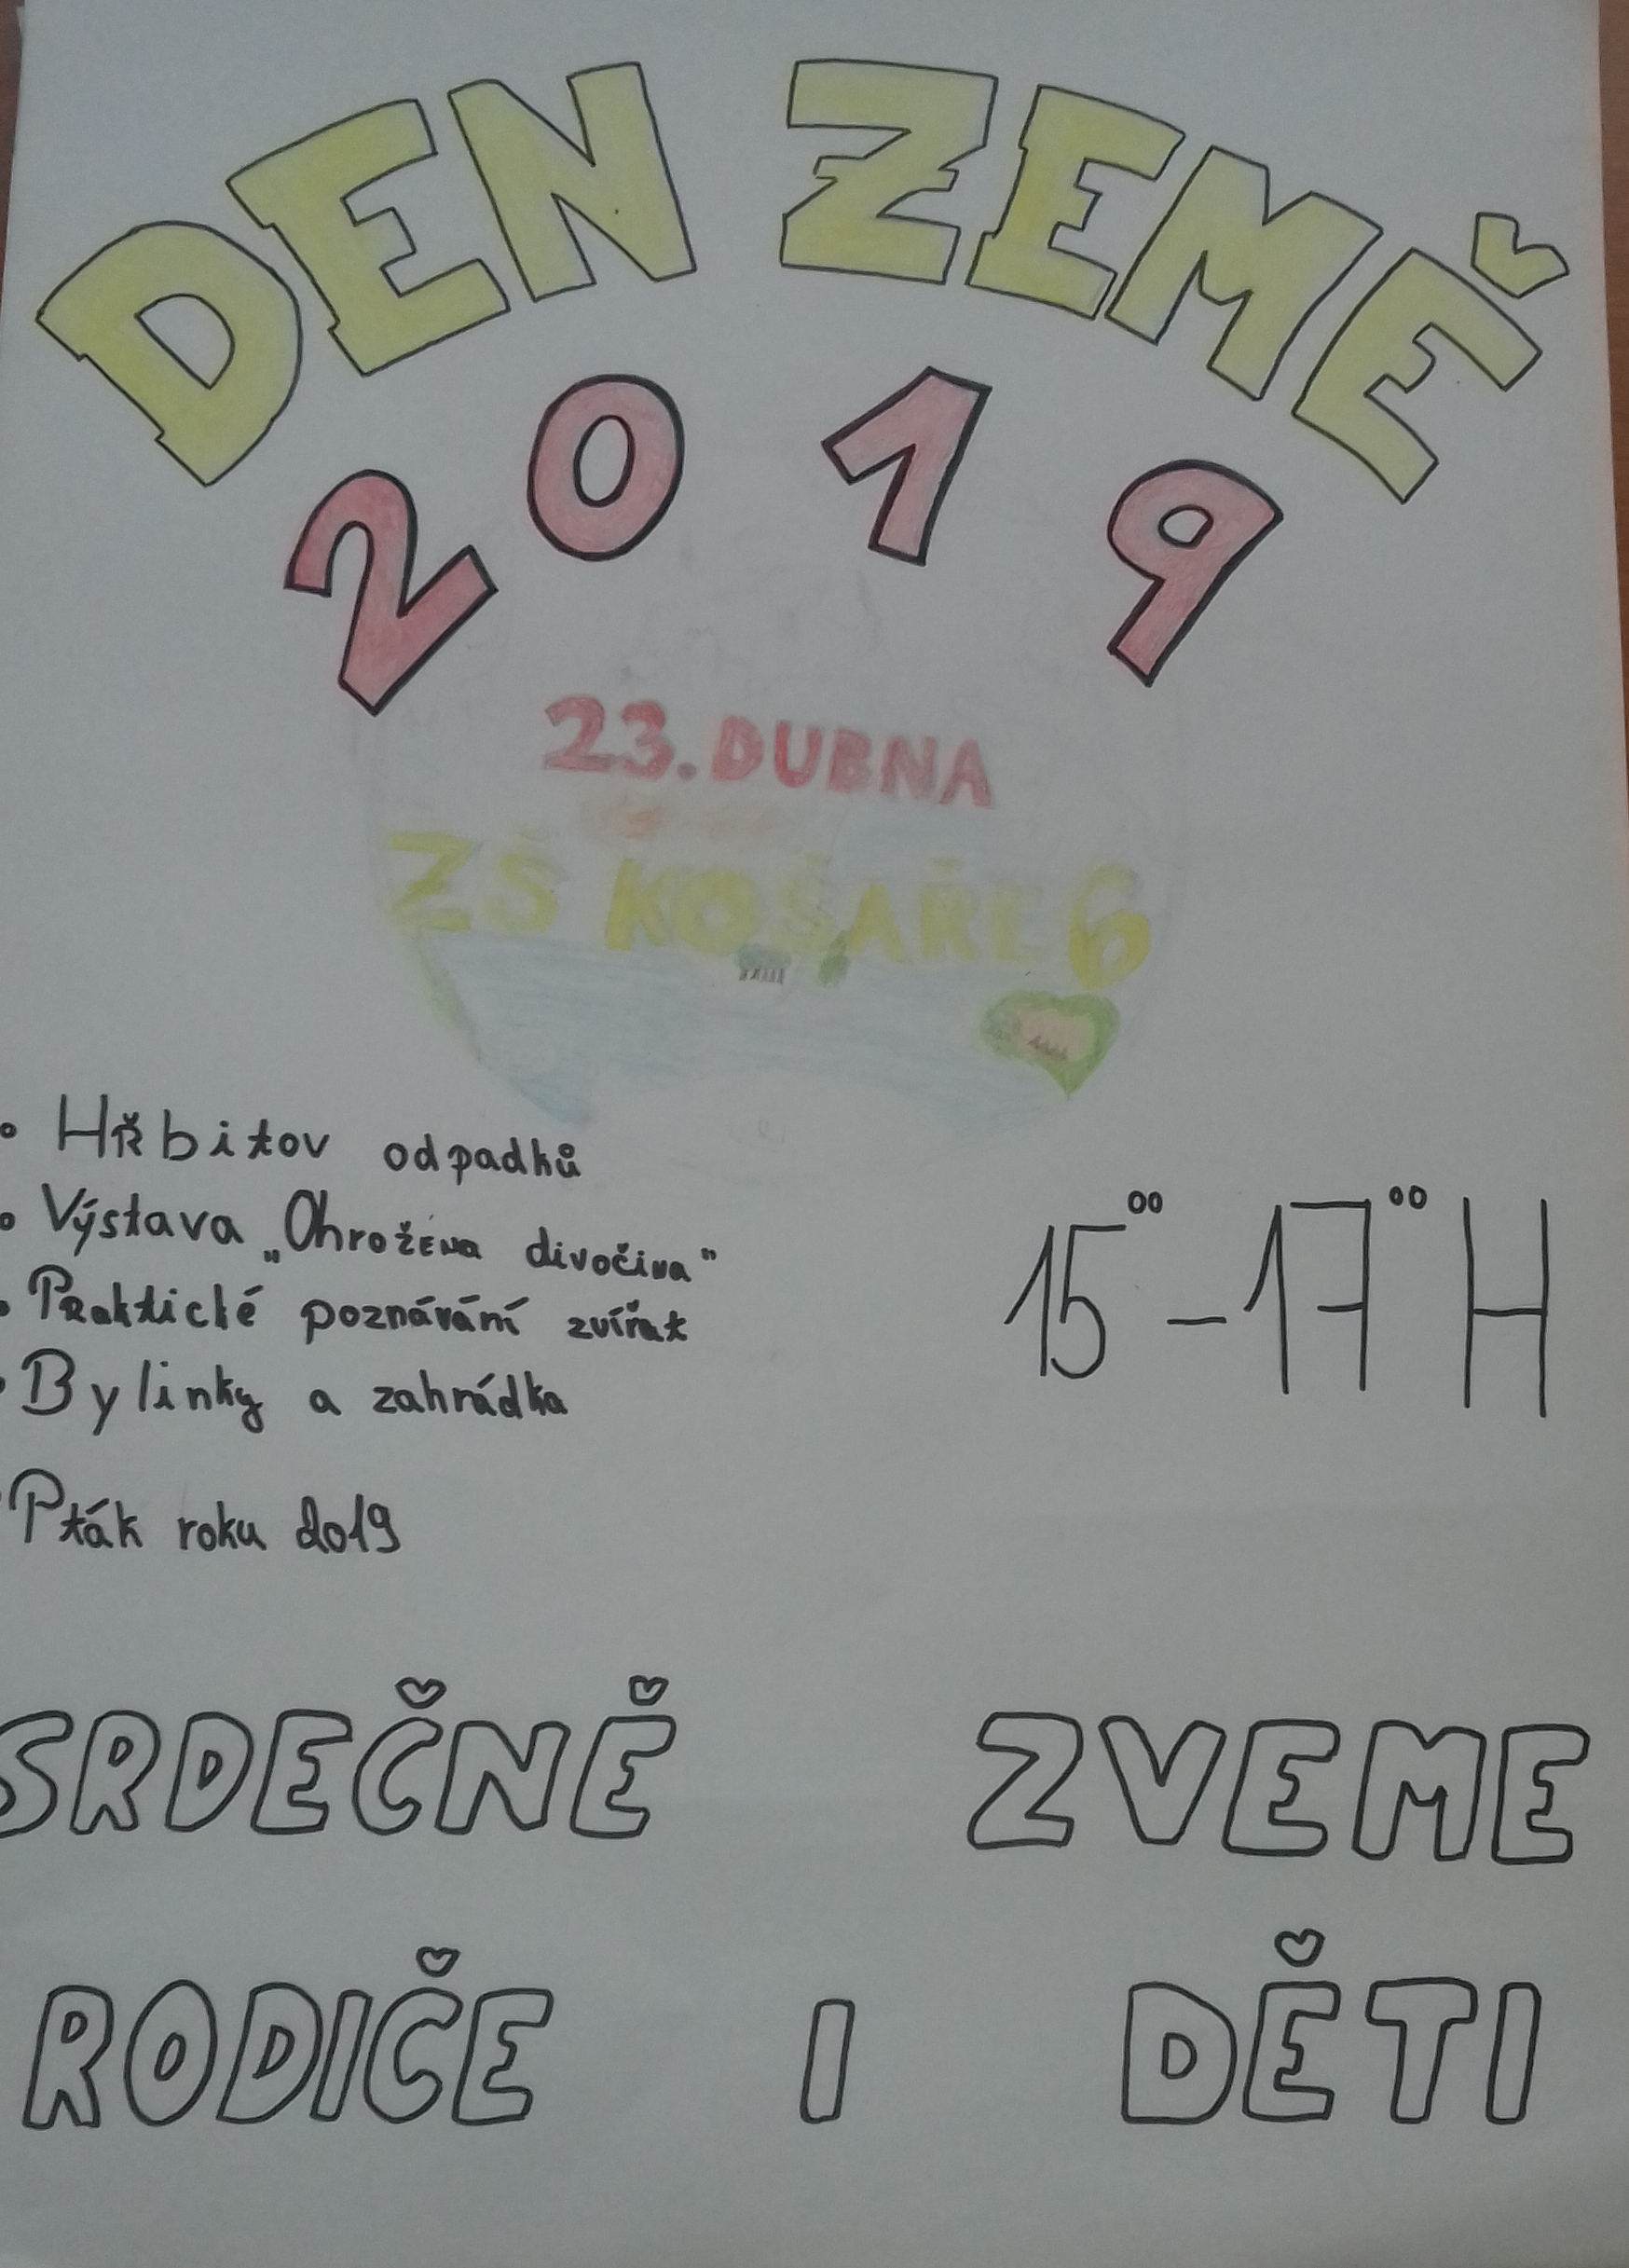 DEN ZEMĚ
2019
23. DUBNA
ZŠ KOŠAŘE 6
• Hřbitov odpadků
• Výstava „Ohrožena divočina"
• Praktické poznávání zvířat
• Bylinky a zahrádka
• Pták roku 2019
15⁰⁰ – 17⁰⁰ H
SRDEČNĚ ZVEME
RODIČE I DĚTI